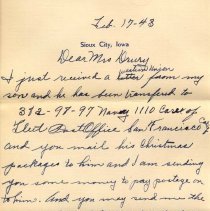 Feb. 17-43
Sioux City, Iowa
Dear Mrs Drury
I just recived a letter from my
son and he has been transferred to
372-97-97 Navy 1110 Care of
Fleet Post Office San Francisco
and you mail his Christmas
packages to him and I am sending
you some money to pay postage on
to him. And you may send me the